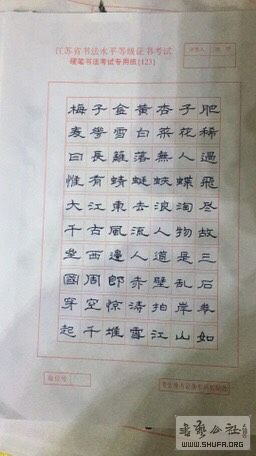 江苏省书法水平等级证书考试
硬笔书法考试专用纸(123)
梅子金黄杏子肥
麦花雪白菜花稀
日長籬落無人過
惟有蜻蜓蛱蝶飛
大江東去浪淘尽
千古風流人物故
壘西邊人道是三
國周郎赤壁乱石
穿空惊涛拍岸卷
起千堆雪江山如
书艺公社
WWW.SHUFA.ORG